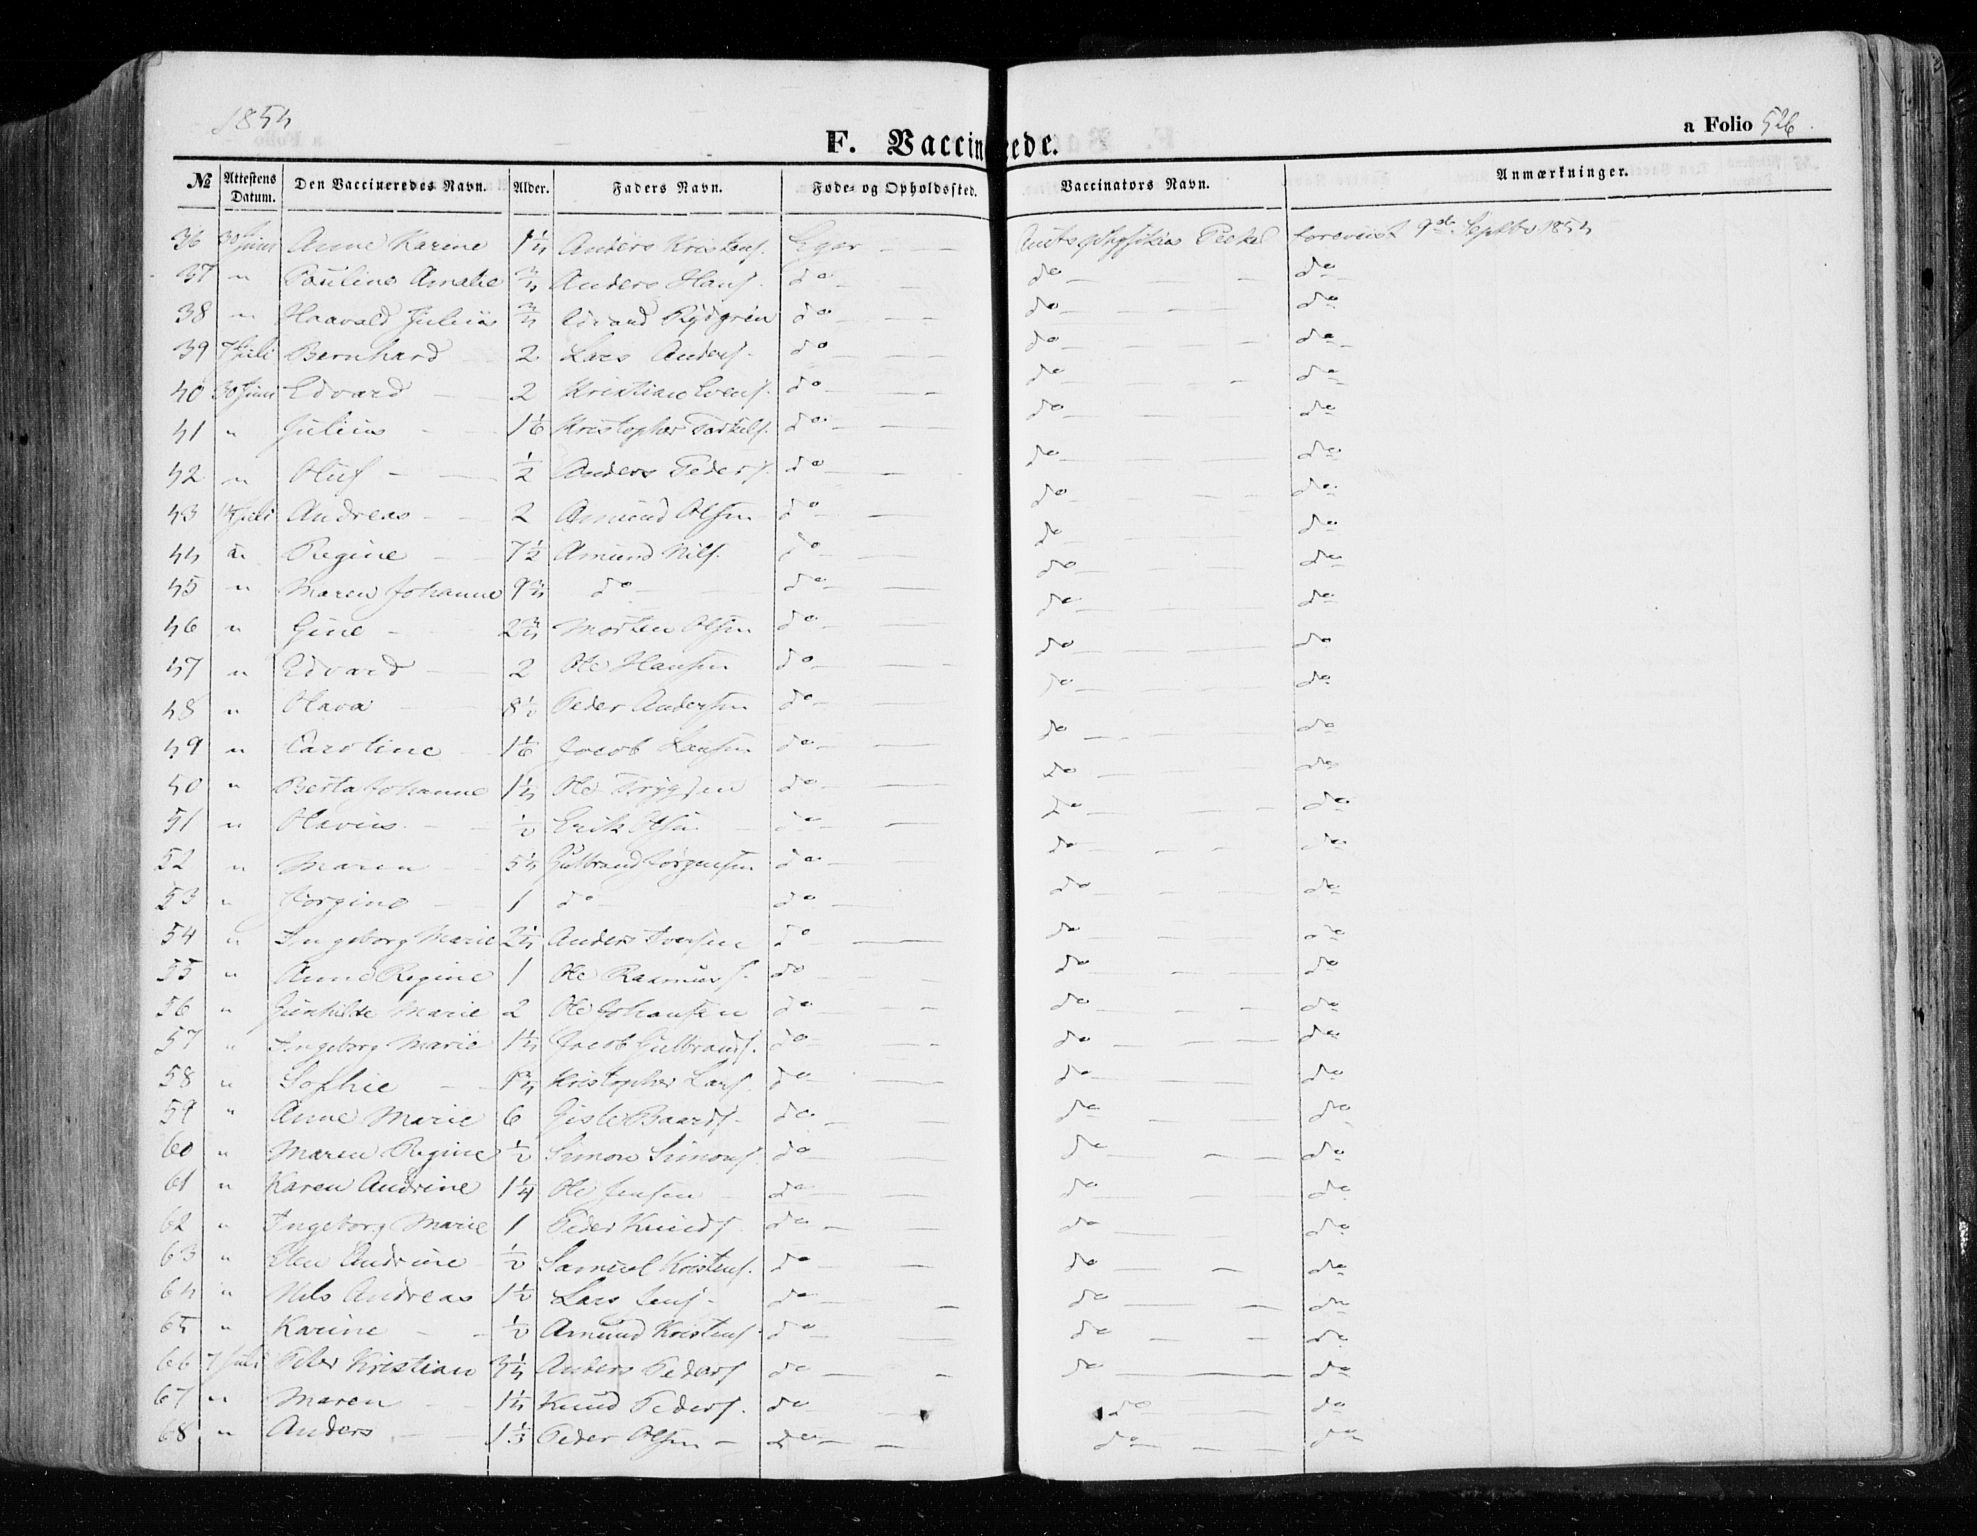 1854
F. Vaccinerede.
a Folio 526.
№ Attestens Datum. Den Vaccineredes Navn. Alder. Faders Navn. Føde- og Opholdssted. Vaccinators Navn. Anmærkninger.
36 30 Juni Anne Karine 1 1/4 Anders Kristens. Eger Amtsphysikus foreviist 9de Septbr 1854
37 " Pauline Amalie 3/4 Anders Hans. do do do
38 " Haavald Julius 3/4 Edvard Rydgren do do do
39 7 Juli Bernhard 2 Lars Anders. do do do
40 30 Juni Edvard 2 Kristian Evens. do do do
41 " Julius 1/6 Kristopher Torkels. do do do
42 " Oluf 1/2 Anders Peders. do do do
43 14 Juli Andreas 2 Amund Olsen do do do
44 " Regine 7 1/2 Amund Nils. do do do
45 " Maren Johanne 9 3/4 do do do do
46 " Gine 2 3/4 Morten Olsen do do do
47 " Edvard 2 Ole Hansen do do do
48 " Olava 8 1/2 Peder Andersen do do do
49 " Caroline 1/6 Jacob Larsen do do do
50 " Berta Johanne 1 1/4 Ole Trygsen do do do
51 " Olavius 1/2 Erik Olsen do do do
52 " Maren 5 1/4 Gulbrand Jørgensen do do do
53 " Jorgine 1 do do do do
54 " Ingeborg Marie 2 1/4 Anders Iversen do do do
55 " Anne Regine 1 Ole Rasmuss. do do do
56 " Gunhilde Marie 2 Ole Johansen do do do
57 " Ingeborg Marie 1 1/4 Jacob Gulbrands. do do do
58 " Sophie 1 3/4 Kristopher Lars. do do do
59 " Anne Marie 6 Gisle Baards. do do do
60 " Maren Regine 1/2 Simon Simons. do do do
61 " Karen Andrine 1 1/4 Ole Jensen do do do
62 " Ingeborg Marie 1 Peder Knuds. do do do
63 " Elen Andrine 1/2 Samuel Kristens. do do do
64 " Nils Andreas 1 1/2 Lars Jens. do do do
65 " Karine 1/2 Amund Kristens. do do do
66 7 Juli Peter Kristian 3 1/4 Anders Peders. do do do
67 " Maren 1 1/4 Knud Peders. do do do
68 " Anders 1 1/3 Peder Olsen do do do